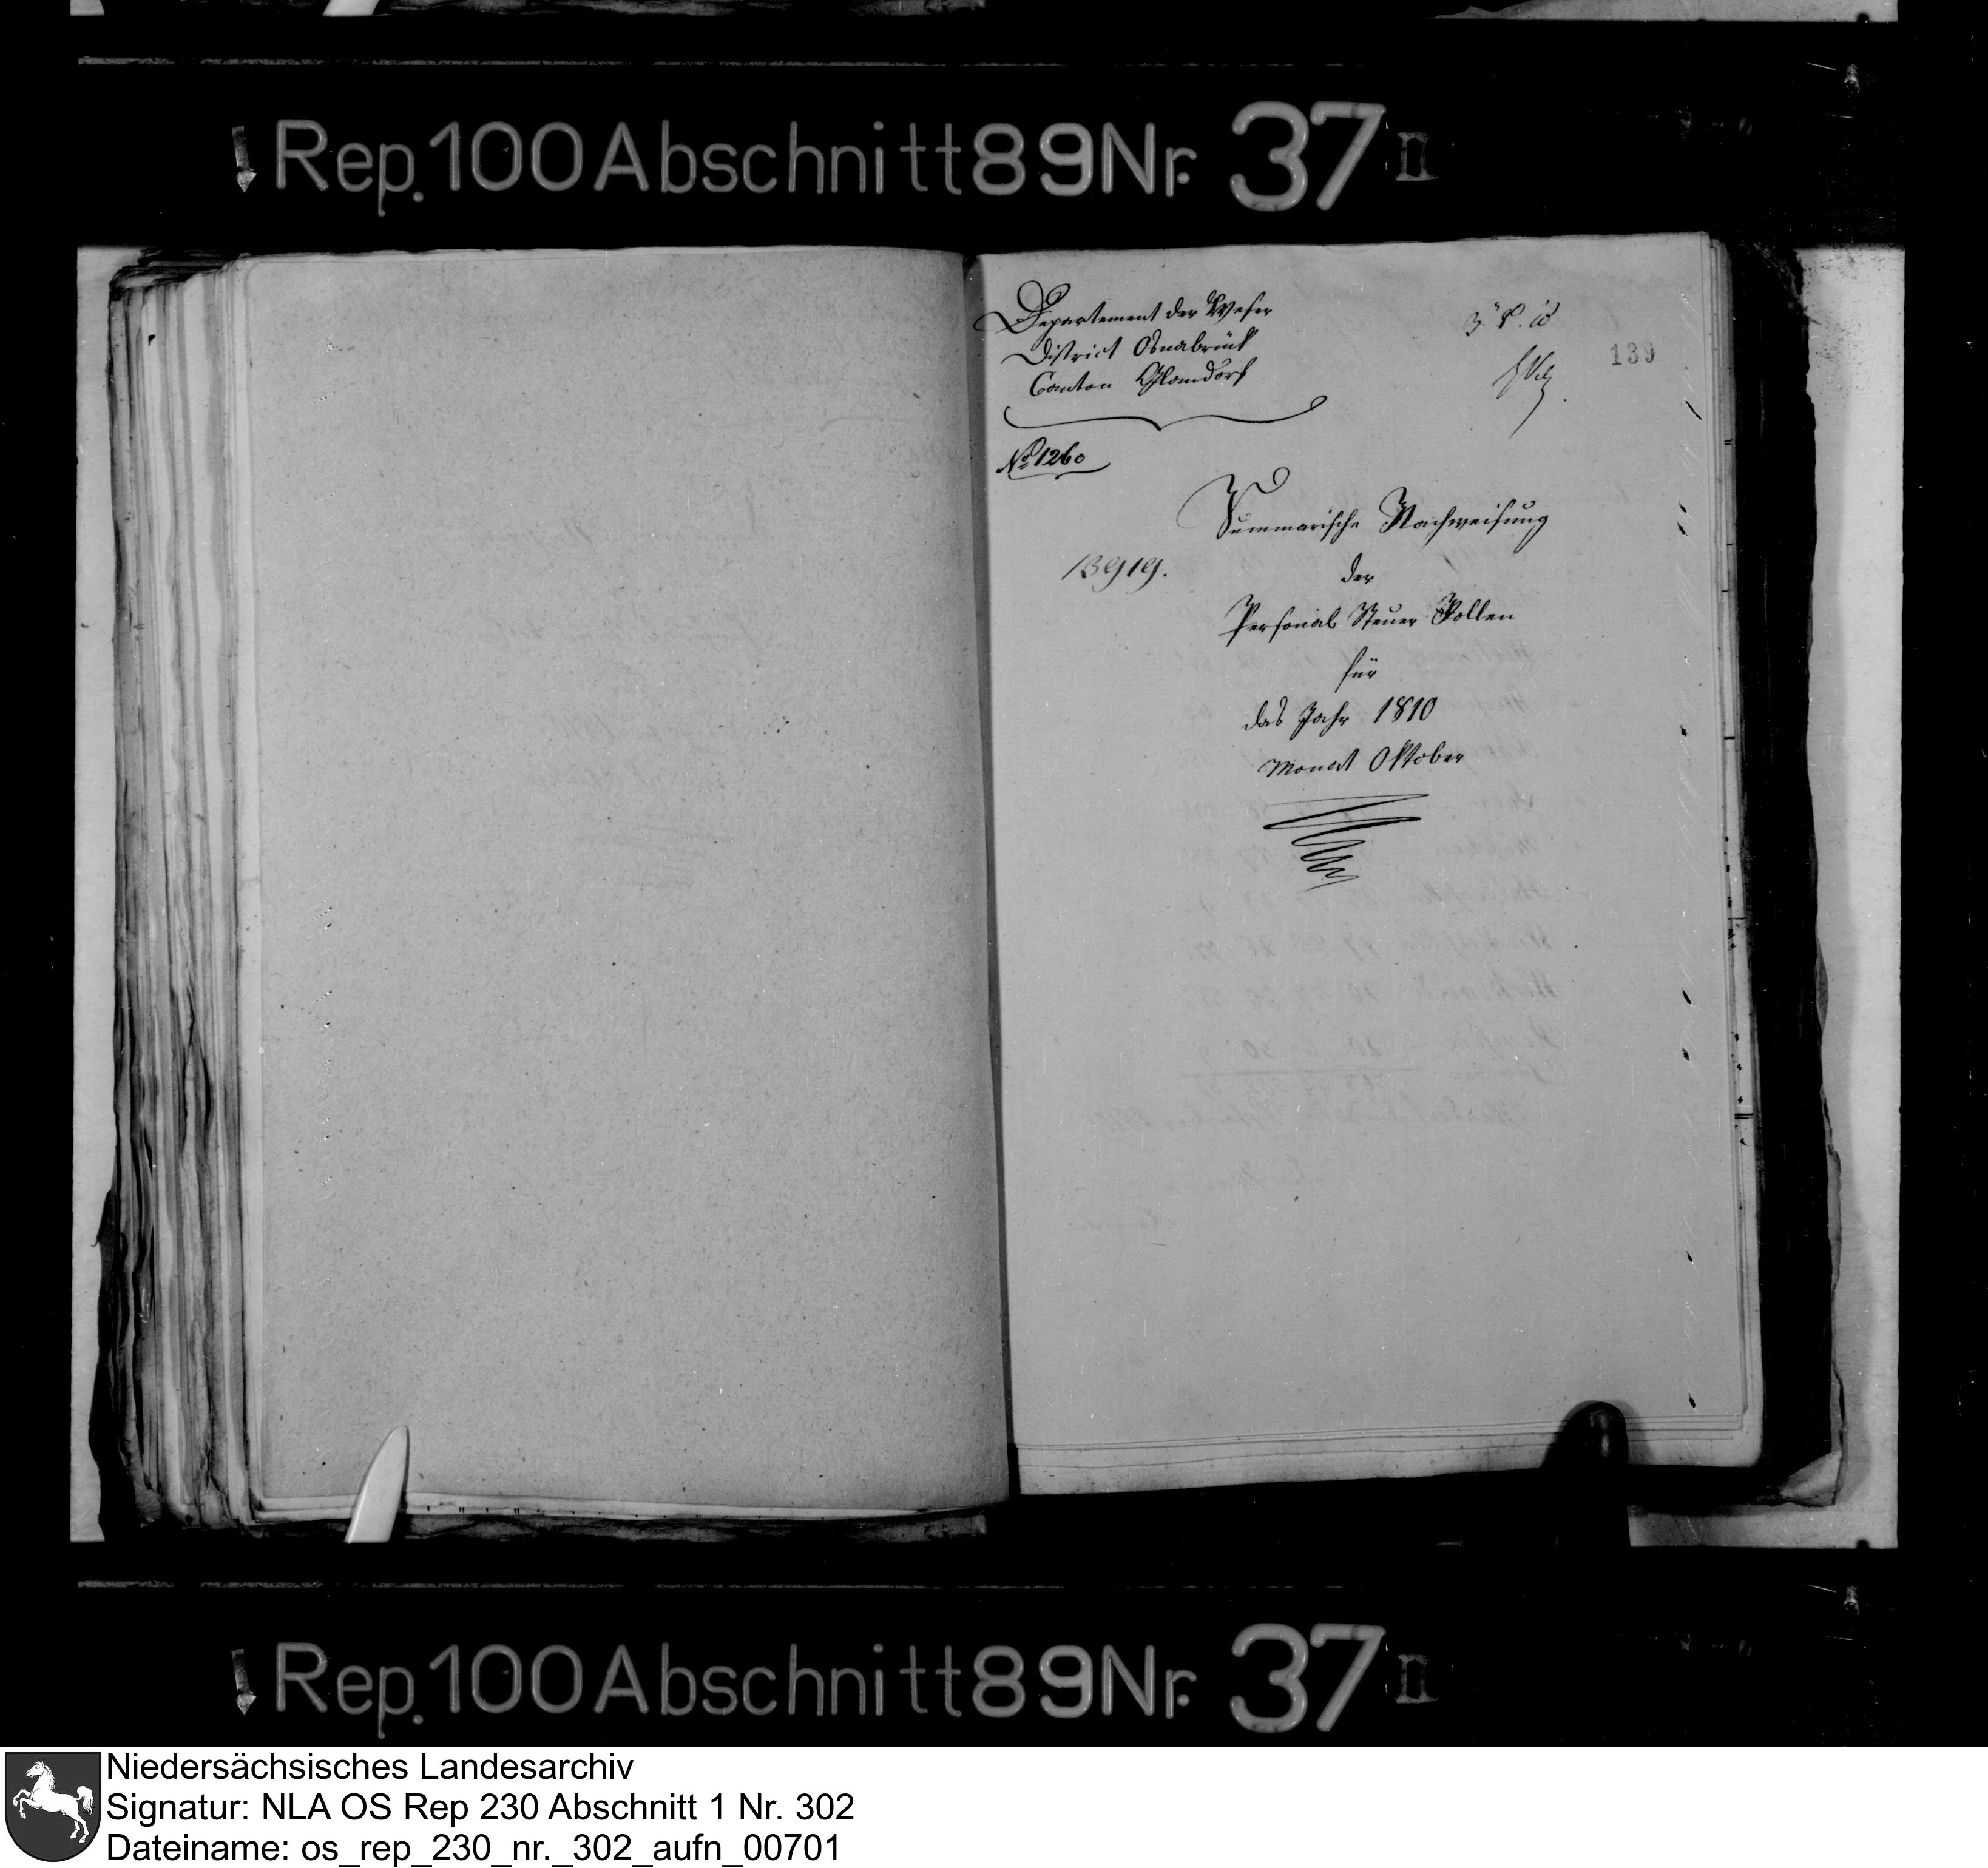 Rep. 100 Abschnitt 89 Nr. 37 II
Departement der Weser
District Osnabrück
Canton Glandorf
139
No 1260
Summarische Nachweisung
13919.
der
Personal Steuer Rollen
für
das Jahr 1810
Monat Oktober
Rep. 100 Abschnitt 89 Nr. 37 II
Niedersächsisches Landesarchiv
Signatur: NLA OS Rep 230 Abschnitt 1 Nr. 302
Dateiname: os_rep_230_nr._302_aufn_00701